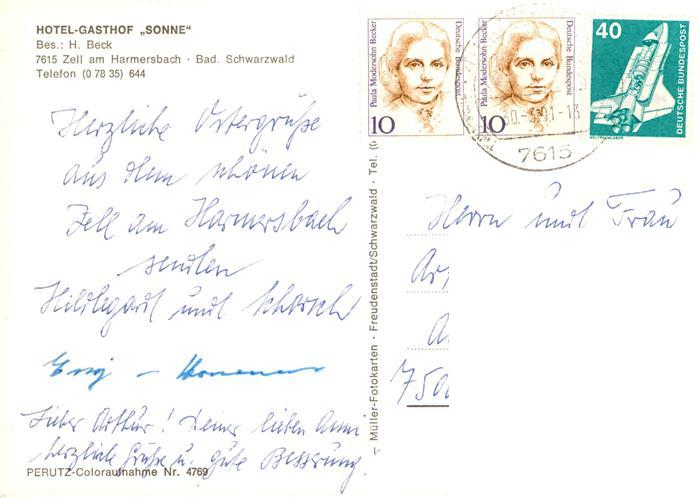 HOTEL-GASTHOF „SONNE"
Bes.: H. Beck
7615 Zell am Harmersbach · Bad. Schwarzwald
Telefon (0 78 35) 644
Herzliche Ostergrüße
aus dem schönen
Zell am Harmersbach
senden
Hildegard und Schorsch
Lieber Arthur! Deiner lieben Anni
herzliche Grüße u. gute Besserung.
PERUTZ-Coloraufnahme Nr. 4769
Müller-Fotokarten · Freudenstadt/Schwarzwald · Tel. (0
Paula Modersohn-Becker
Deutsche Bundespost
10
Paula Modersohn-Becker
Deutsche Bundespost
10
40
DEUTSCHE BUNDESPOST
7615
Herrn und Frau
750